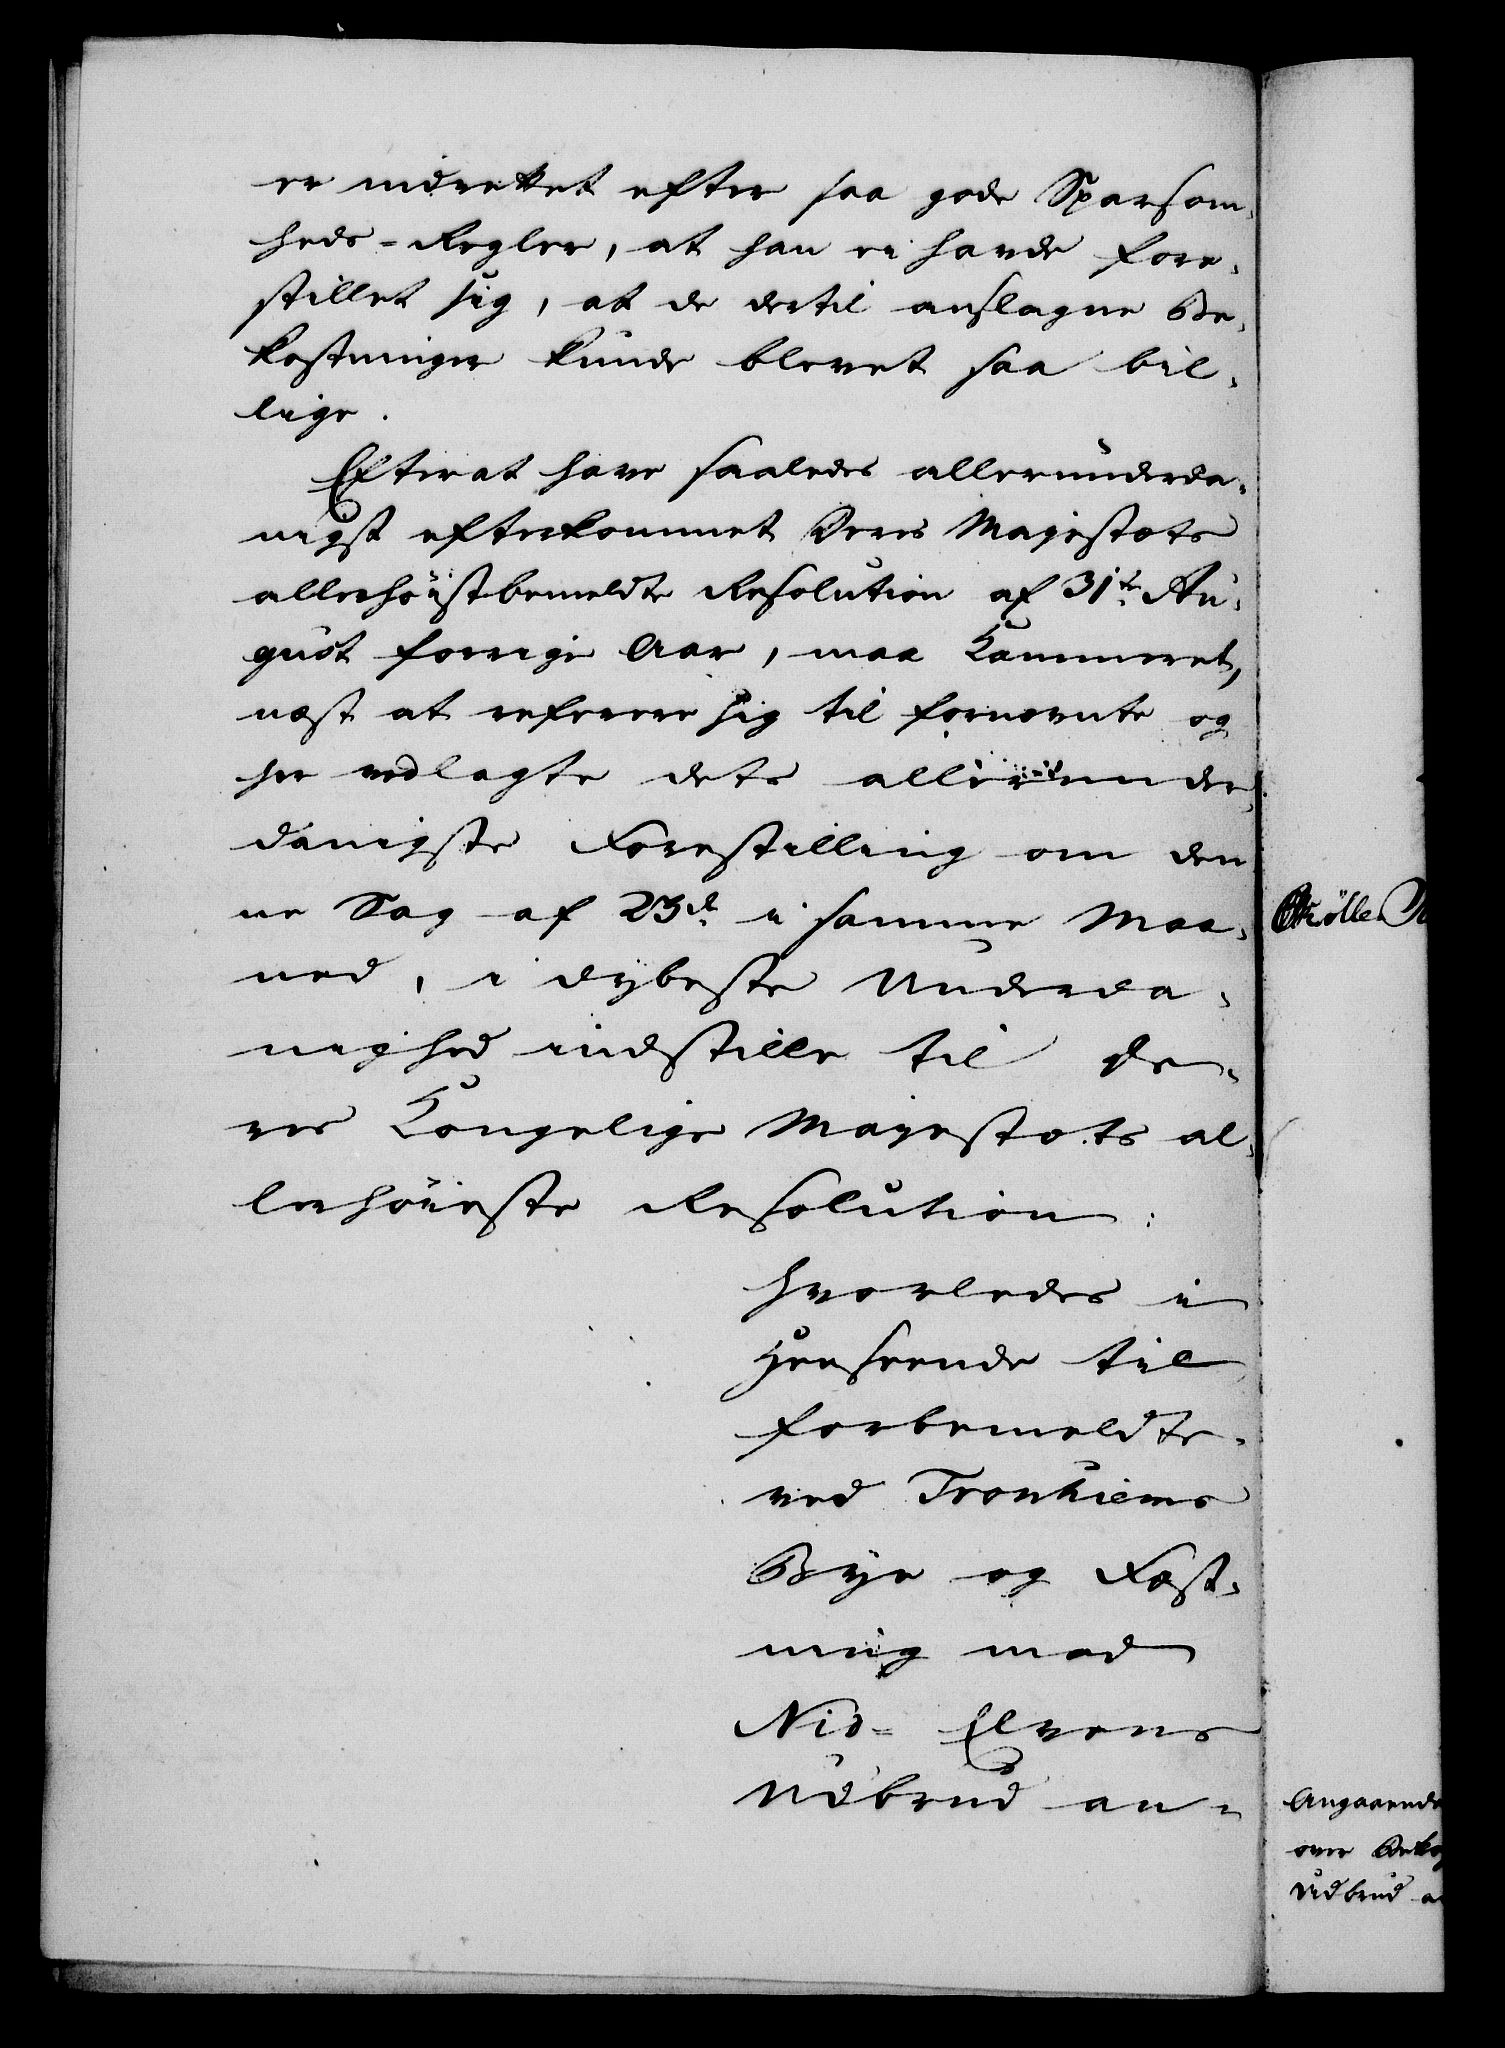 er indrettet efter saa gode Sparsom-
heds-Regler, at han ei havde fore-
stillet sig, at de dertil anslagne Be-
kostninger kunde blevet saa bil-
lige.
Efterat have saaledes allerunderda-
nigst efterkommet Deres Majestæts
allerhöistbemeldte Resolution af 31te Au-
gust forrige Aar, maa Kammeret,
næst at referere sig til fornævnte og
her vedlagte dets allerunder
danigste Forestilling om den
ne Sag af 23d i samme Maa-
ned, i dybeste Underda-
nighed indstille til De-
res Kongelige Majestæts al-
lerhöieste Resolution:
hvorledes i
Henseende til
forbemeldte
ved Tronhiems
Bye og Fæst-
ning mod
Nid- Elvens
Udbrud an-
Möller
Angaaende
over
Udbrud